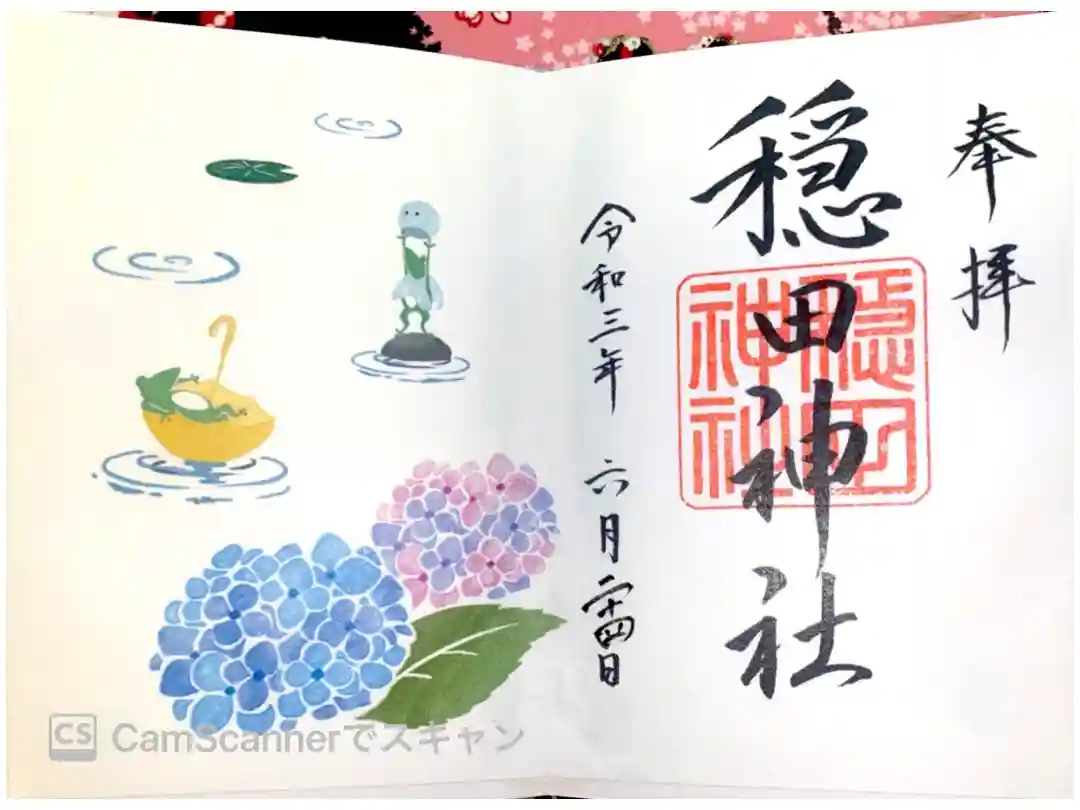 奉拝
穏田神社
穏田神社
令和三年 六月二十四日
CS CamScannerでスキャン